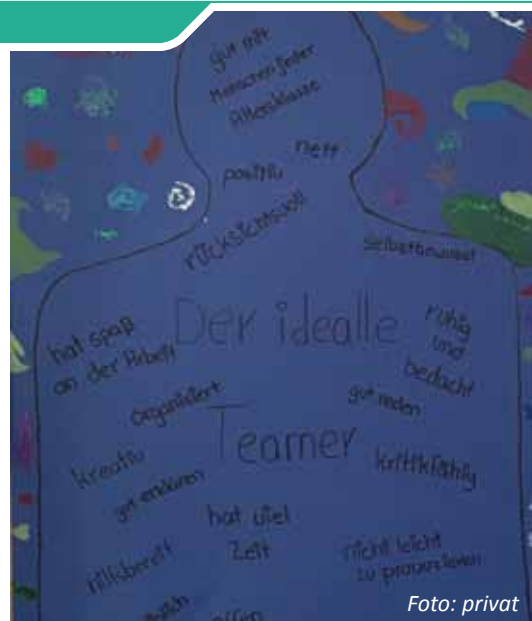 gut mit
Menschen jeder
Altersklasse
nett
positiv
rücksichtsvoll
selbstbewusst
Der idealle
hat spaß
an der Arbeit
ruhig
und
bedacht
organisiert
gut reden
Teamer
kreativ
kritikfähig
gut erklären
hat viel
Zeit
hilfsbereit
nicht leicht
zu provozieren
offen
Foto: privat